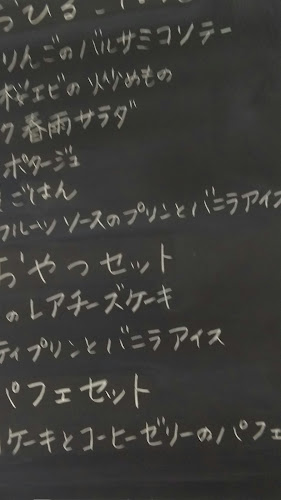 おひるごはん
りんごのバルサミコソテー
桜エビの炒めもの
ク春雨サラダ
ポタージュ
ごはん
フルーツソースのプリンとバニラアイス
おやつセット
のレアチーズケーキ
ティプリンとバニラアイス
パフェセット
ケーキとコーヒーゼリーのパフェ